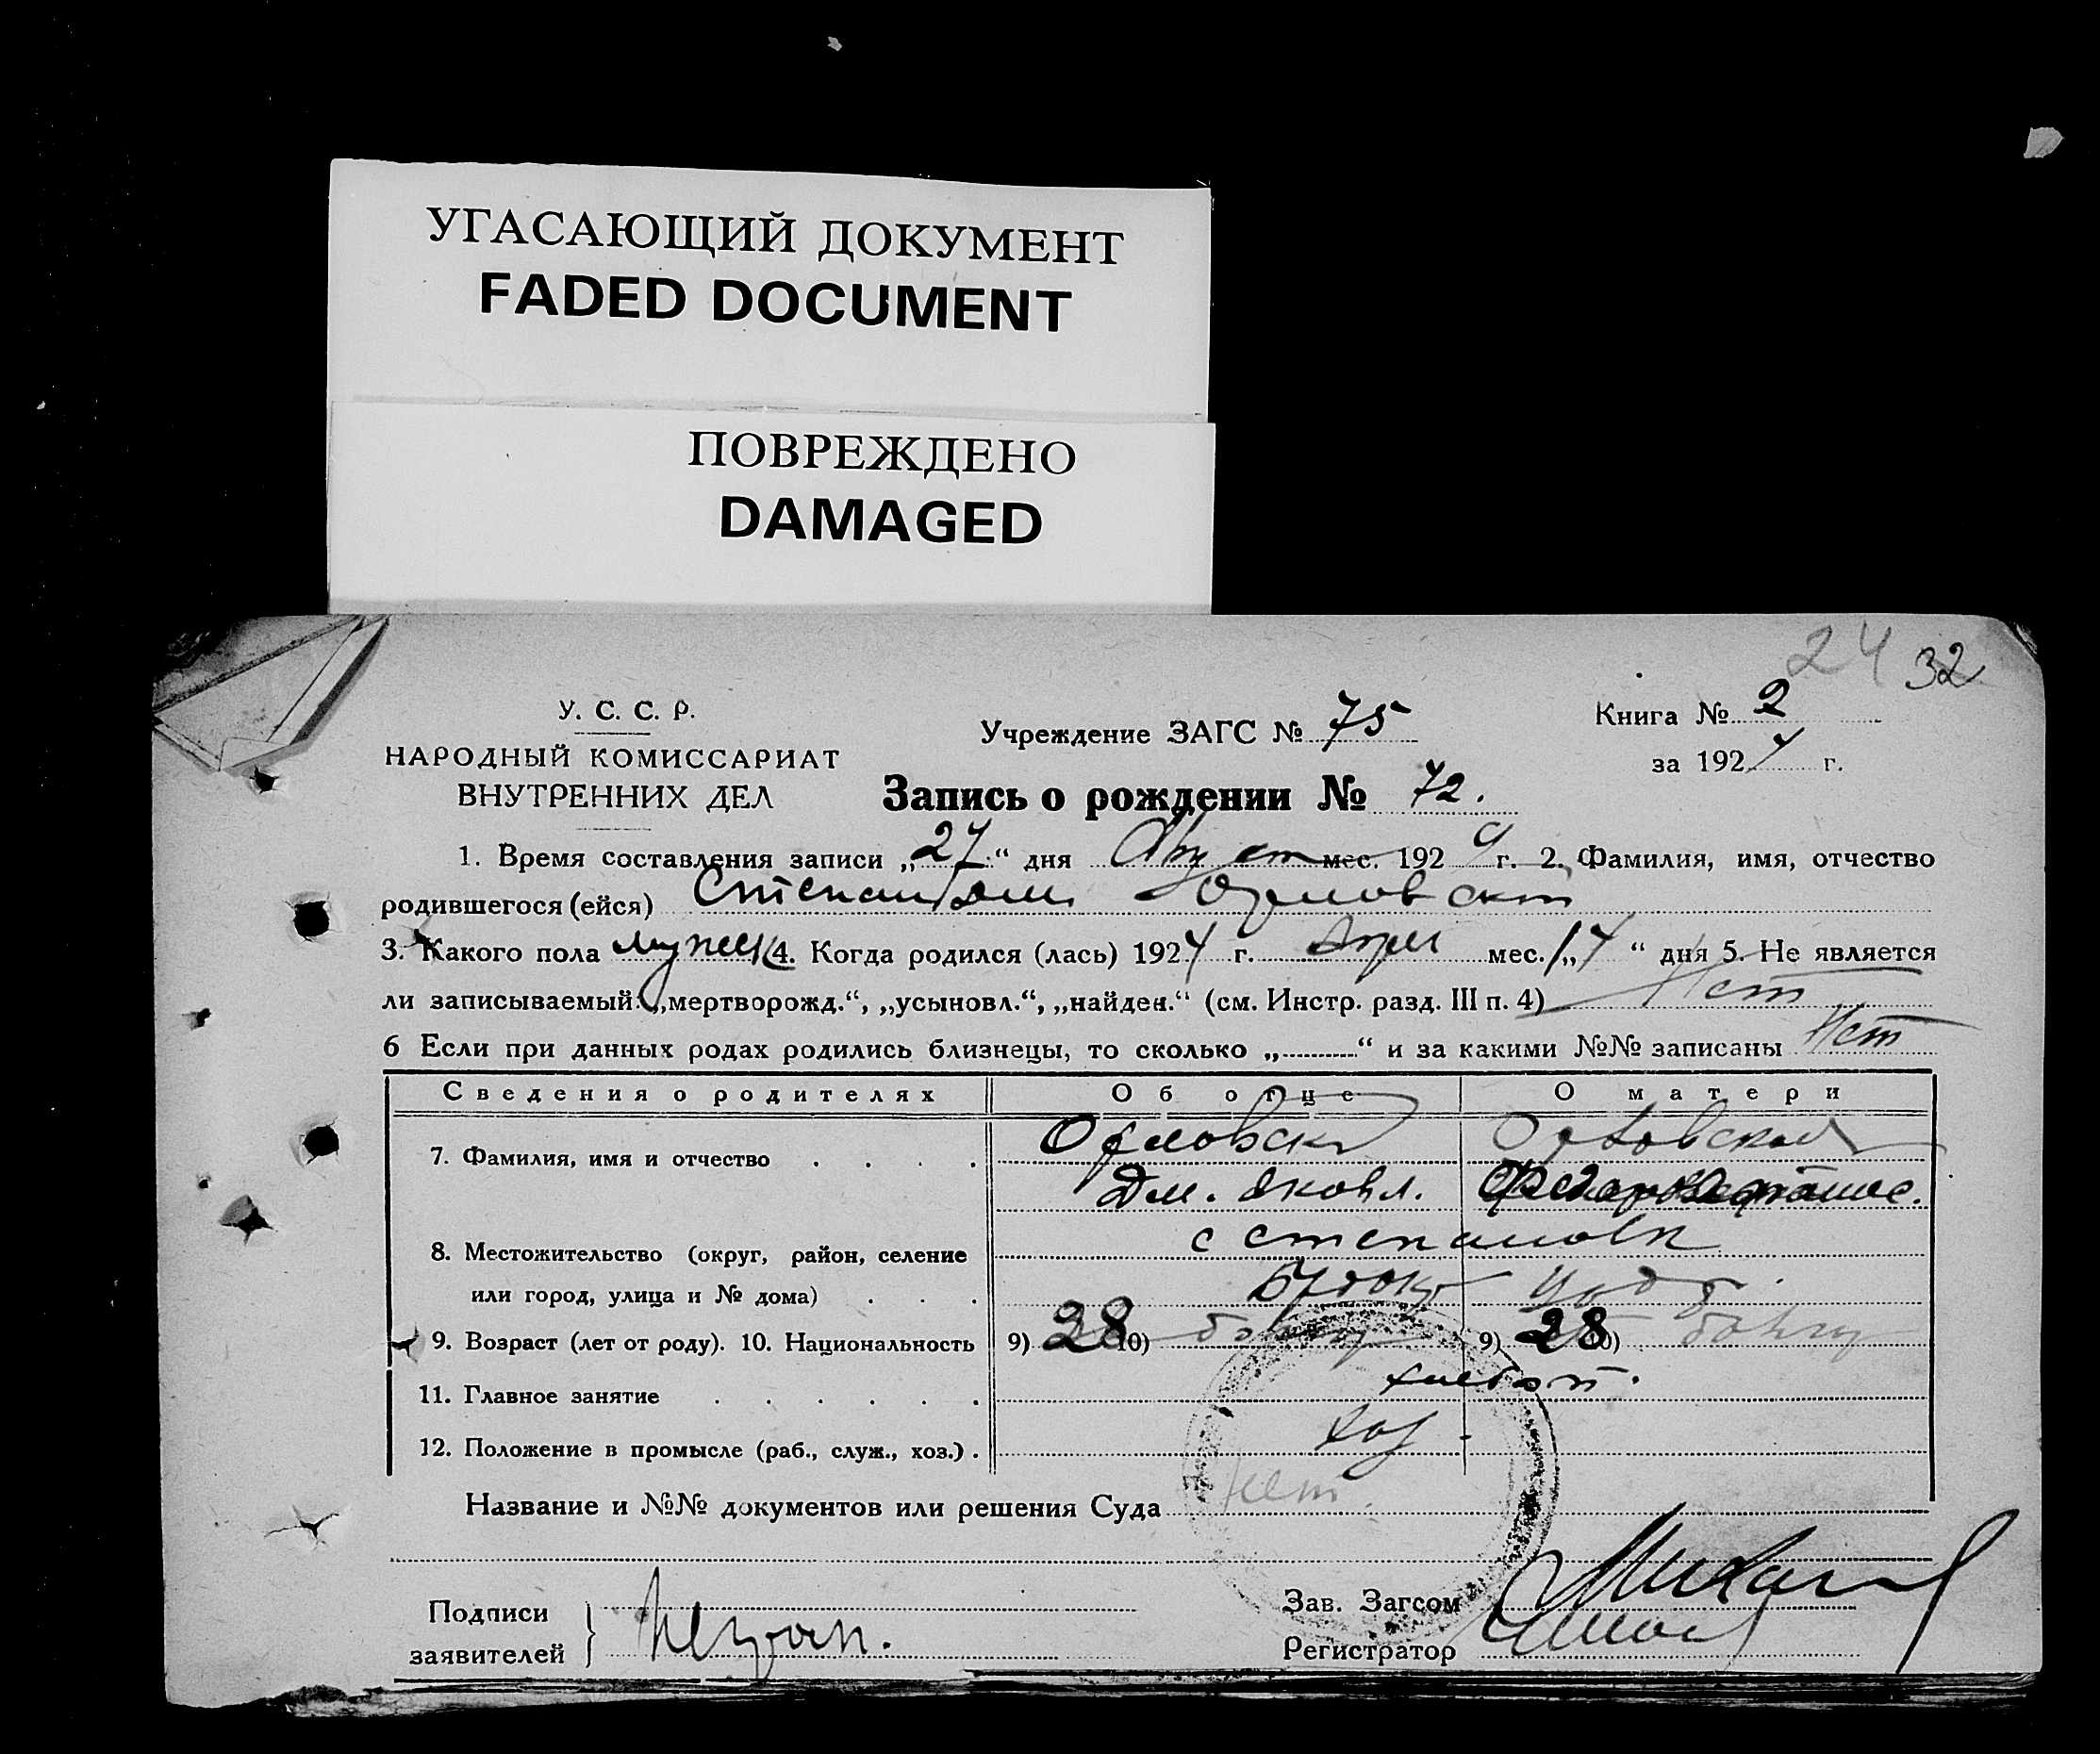 УГАСАЮЩИЙ ДОКУМЕНТ
FADED DOCUMENT
ПОВРЕЖДЕНО
DAMAGED
24 32
У. С. С. Р.
НАРОДНЫЙ КОМИССАРИАТ
ВНУТРЕННИХ ДЕЛ
Учреждение ЗАГС № 75
Книга № 2
за 1924 г.
Запись о рождении № 72.
1. Время составления записи „27“ дня Август мес. 192 г. 2. Фамилия, имя, отчество
родившегося (ейся) Степан
3. Какого пола мужск 4. Когда родился (лась) 1924 г. мес. „ “ дня 5. Не является
ли записываемый: „мертворожд.“, „усыновл.“, „найден.“ (см. Инстр. разд. III п. 4) Нет
6 Если при данных родах родились близнецы, то сколько „ “ и за какими №№ записаны Нет
Сведения о родителях Об отце О матери
7. Фамилия, имя и отчество Орловск Орловская
Дм. Яковл.
8. Местожительство (округ, район, селение с Степановк
или город, улица и № дома)
9. Возраст (лет от роду). 10. Национальность 9) 28 10) 9) 28 10)
11. Главное занятие хлебоп.
12. Положение в промысле (раб., служ., хоз.) хоз
Название и №№ документов или решения Суда Нет.
Подписи
заявителей } Неграм.
Зав. Загсом
Регистратор